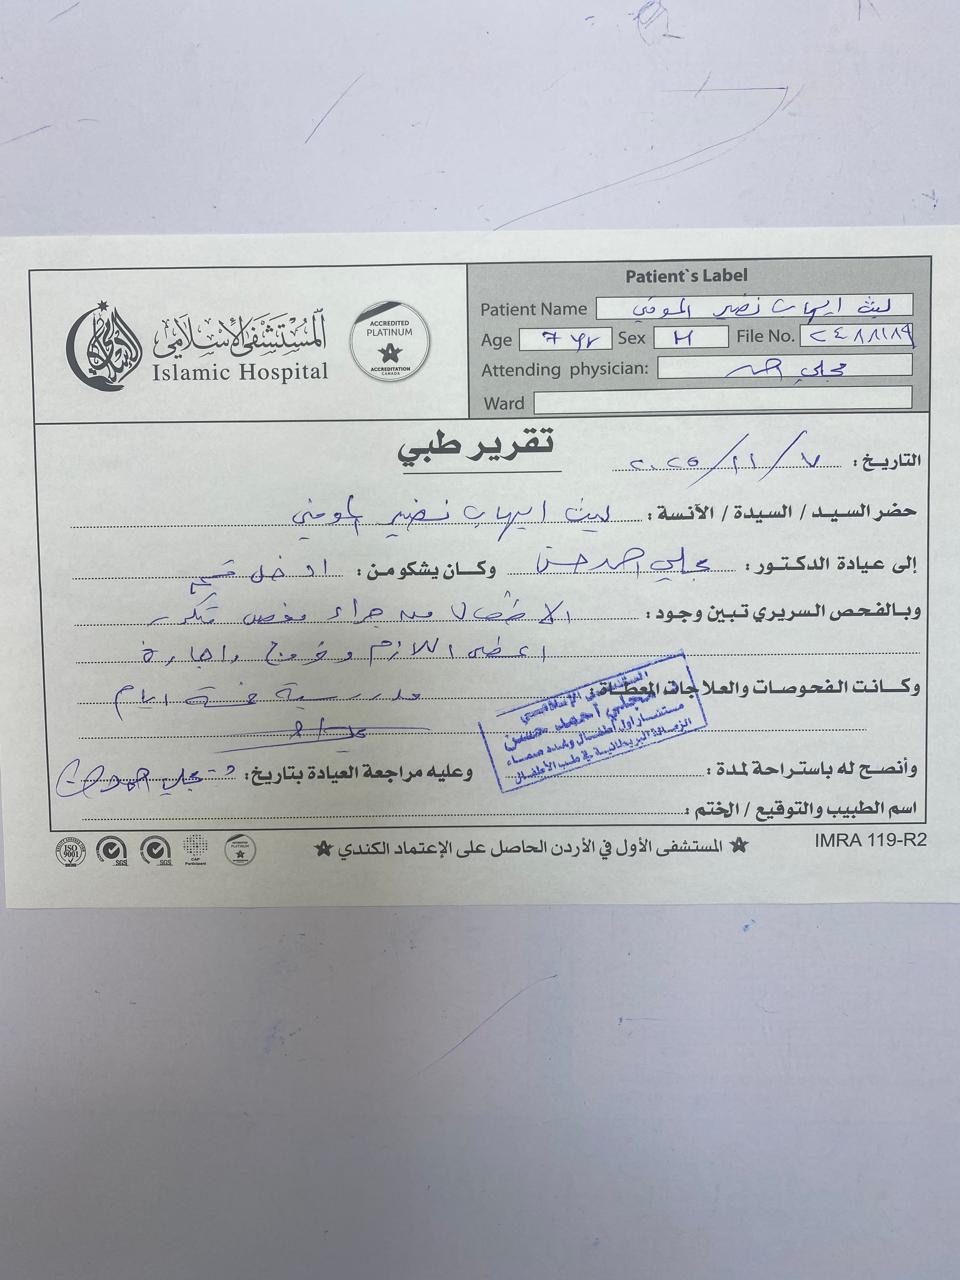 المستشفى الإسلامي
Islamic Hospital
ACCREDITED
PLATINUM
ACCREDITATION
CANADA
Patient`s Label
Patient Name ليث ايهاب نضير المومني
Age 7 yr Sex M File No. ٢٤٨٨١٨٩
Attending physician: مجلي احمد
Ward
تقرير طبي
التاريخ : ٧ / ١١ / ٢٠٢٥
حضر السيد / السيدة / الآنسة : ليث ايهاب نضير المومني
إلى عيادة الدكتور : مجلي احمد حسن وكان يشكو من : ادخل قسم
وبالفحص السريري تبين وجود : الاطفال من جراء مغص متكرر
اعطي اللازم وخروج واجازة
وكانت الفحوصات والعلاجات المعطاة : مدرسية خمسة ايام
المستشفى الإسلامي
د. مجلي أحمد حسن
مستشار اول أطفال وغدد صماء
الزمالة البريطانية في طب الأطفال
وأنصح له باستراحة لمدة : وعليه مراجعة العيادة بتاريخ : د. مجلي احمد حسن
اسم الطبيب والتوقيع / الختم :
IMRA 119-R2
المستشفى الأول في الأردن الحاصل على الإعتماد الكندي
ISO 9001
SGS
SGS
CAP
Participant